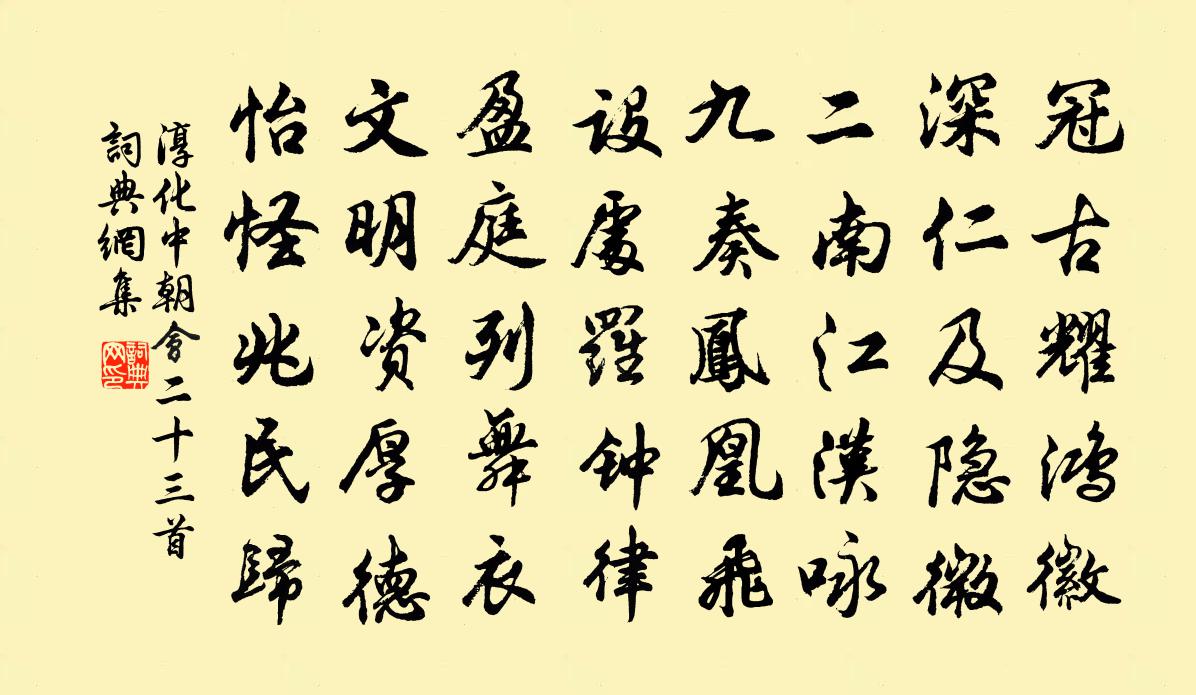 冠古耀鸿徽
深仁及隐微
二南江漢咏
九奏鳳凰飛
設處羅钟律
盈庭列舞衣
文明资厚德
怡怪兆民歸
淳化中朝會二十三首
詞典網集
詞典网印